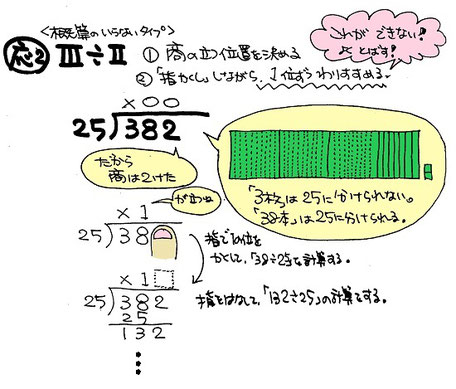 <概算のいらないタイプ>
応2 III÷II
① 商の立つ位置を決める
②「指かくし」しながら、1位ずつわりすすめる。
これが できない!
とばす!
×○○
25)382
だから
商は2けた
「3枚」は25に分けられない。
「38本」は25に分けられる。
が立つね
×1
25)38
指で1の位を
かくして、「38÷25」を計算する。
×1
25)382
25
132
指をはなして、「132÷25」の計算をする。